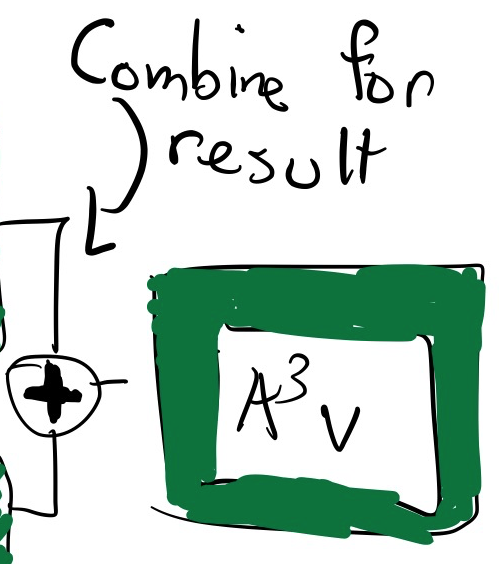 Combine for
result
+
A³v